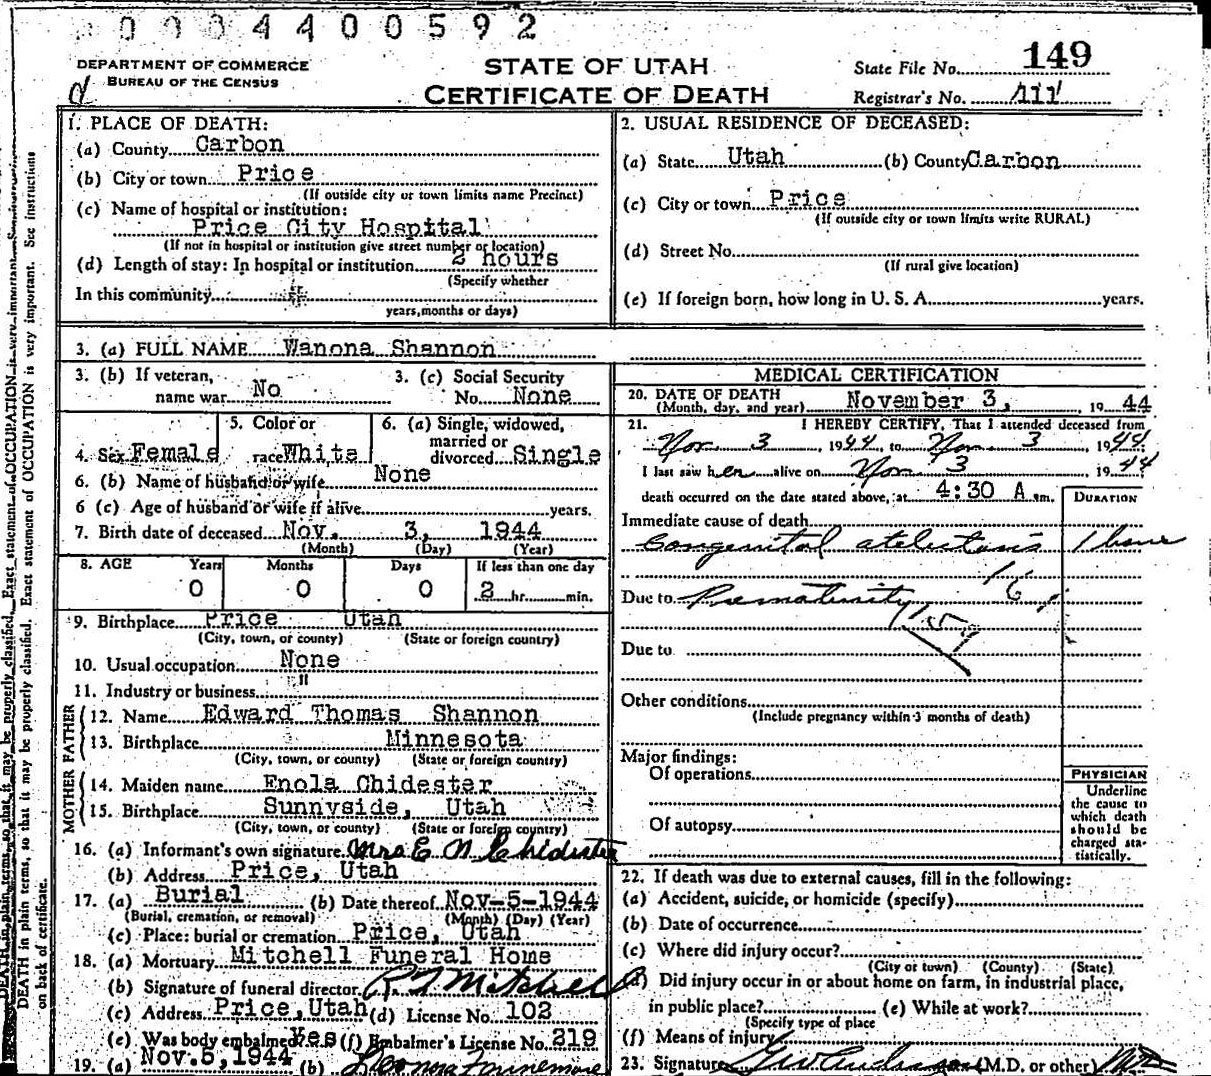 0 0 0 4 4 0 0 5 9 2
DEPARTMENT OF COMMERCE
BUREAU OF THE CENSUS
d
STATE OF UTAH
CERTIFICATE OF DEATH
State File No. 149
Registrar's No. 111
1. PLACE OF DEATH:
(a) County Carbon
(b) City or town Price
(If outside city or town limits name Precinct)
(c) Name of hospital or institution:
Price City Hospital
(If not in hospital or institution give street number or location)
(d) Length of stay: In hospital or institution 2 hours
(Specify whether
In this community "
years, months or days)
2. USUAL RESIDENCE OF DECEASED:
(a) State Utah (b) County Carbon
(c) City or town Price
(If outside city or town limits write RURAL)
(d) Street No.
(If rural give location)
(e) If foreign born, how long in U. S. A. years.
3. (a) FULL NAME Wanona Shannon
3. (b) If veteran, 3. (c) Social Security
name war No No. None
4. Sex Female
5. Color or
race White
6. (a) Single, widowed,
married or
divorced Single
6. (b) Name of husband or wife None
6 (c) Age of husband or wife if alive years.
7. Birth date of deceased Nov. 3, 1944
(Month) (Day) (Year)
8. AGE Years Months Days If less than one day
0 0 0 2 hr. min.
9. Birthplace Price Utah
(City, town, or county) (State or foreign country)
10. Usual occupation None
11. Industry or business "
FATHER
12. Name Edward Thomas Shannon
13. Birthplace Minnesota
(City, town, or county) (State or foreign country)
MOTHER
14. Maiden name Enola Chidester
15. Birthplace Sunnyside, Utah
(City, town, or county) (State or foreign country)
16. (a) Informant's own signature Mrs E N Chidester
(b) Address Price, Utah
17. (a) Burial (b) Date thereof Nov-5-1944
(Burial, cremation, or removal) (Month) (Day) (Year)
(c) Place: burial or cremation Price, Utah
18. (a) Mortuary Mitchell Funeral Home
(b) Signature of funeral director Mitchell
(c) Address Price, Utah (d) License No. 102
(e) Was body embalmed Yes (f) Embalmer's License No. 219
19. (a) Nov. 5, 1944 (b)
MEDICAL CERTIFICATION
20. DATE OF DEATH
(Month, day, and year) November 3, 1944
21. I HEREBY CERTIFY, That I attended deceased from
Nov 3, 1944, to Nov 3, 1944
I last saw her alive on Nov 3 1944
death occurred on the date stated above, at 4:30 A m.
DURATION
Immediate cause of death
Congenital atelectasis 1 hour
Due to Prematurity
Due to
Other conditions
(Include pregnancy within 3 months of death)
Major findings:
Of operations
Of autopsy
PHYSICIAN
Underline
the cause to
which death
should be
charged sta-
tistically.
22. If death was due to external causes, fill in the following:
(a) Accident, suicide, or homicide (specify)
(b) Date of occurrence
(c) Where did injury occur?
(City or town) (County) (State)
(d) Did injury occur in or about home on farm, in industrial place,
in public place? (e) While at work?
(Specify type of place
(f) Means of injury
23. Signature (M.D. or other)
DEATH in plain terms, so that it may be properly classified. Exact statement of OCCUPATION is very important. See instructions
on back of certificate.